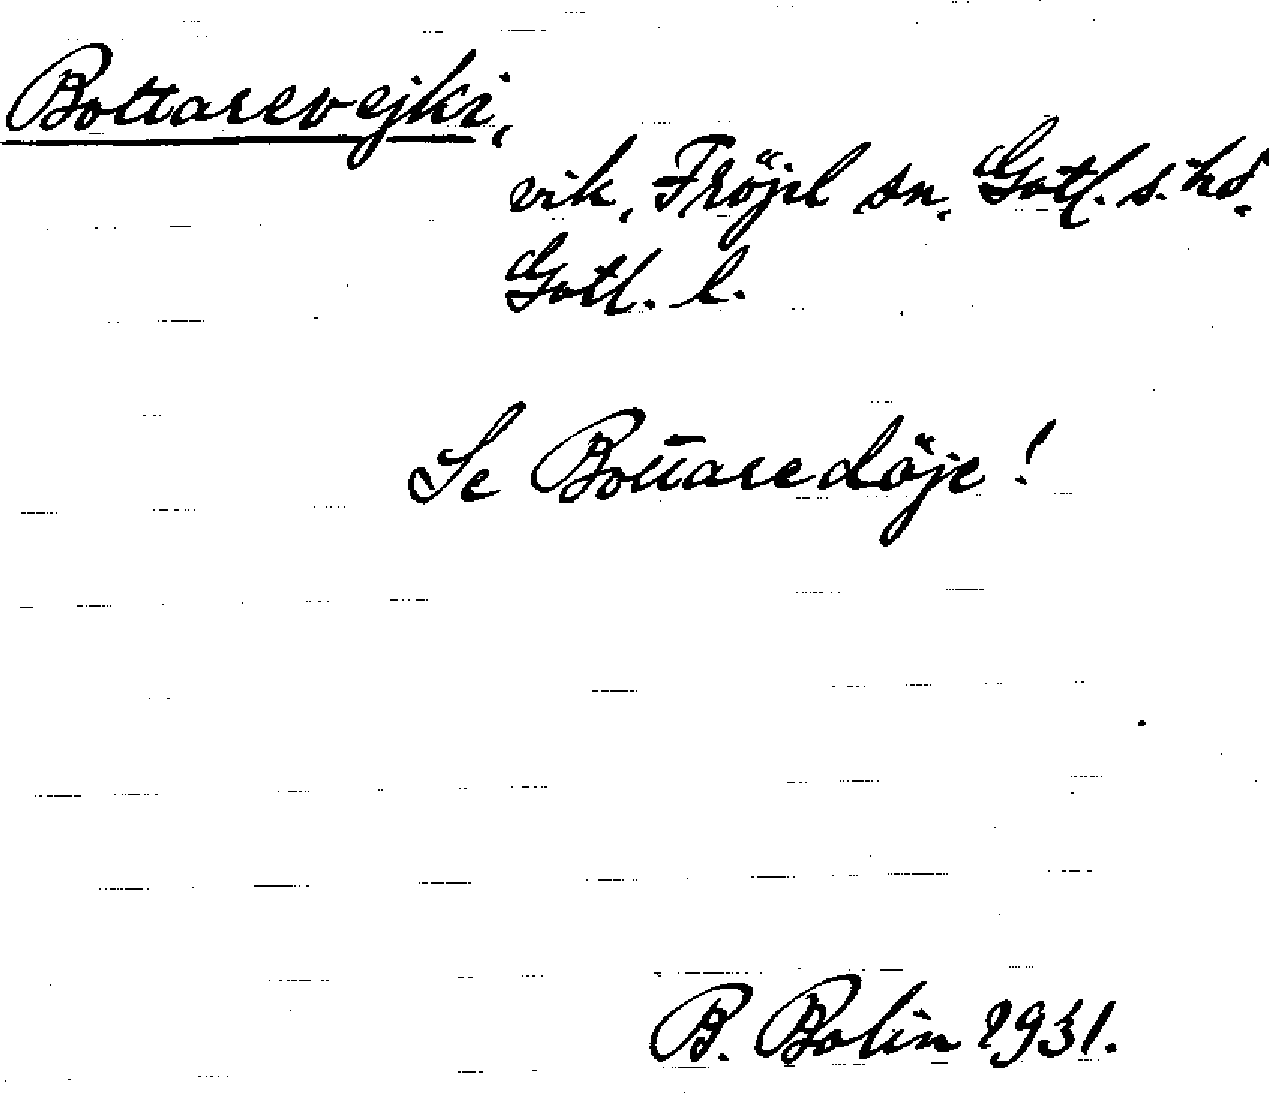 Bottarevejki,
vik, Fröjel sn, Gotl. s. hd.
Gotl. l.
Se Bottaredöje!
B. Bolin 1931.